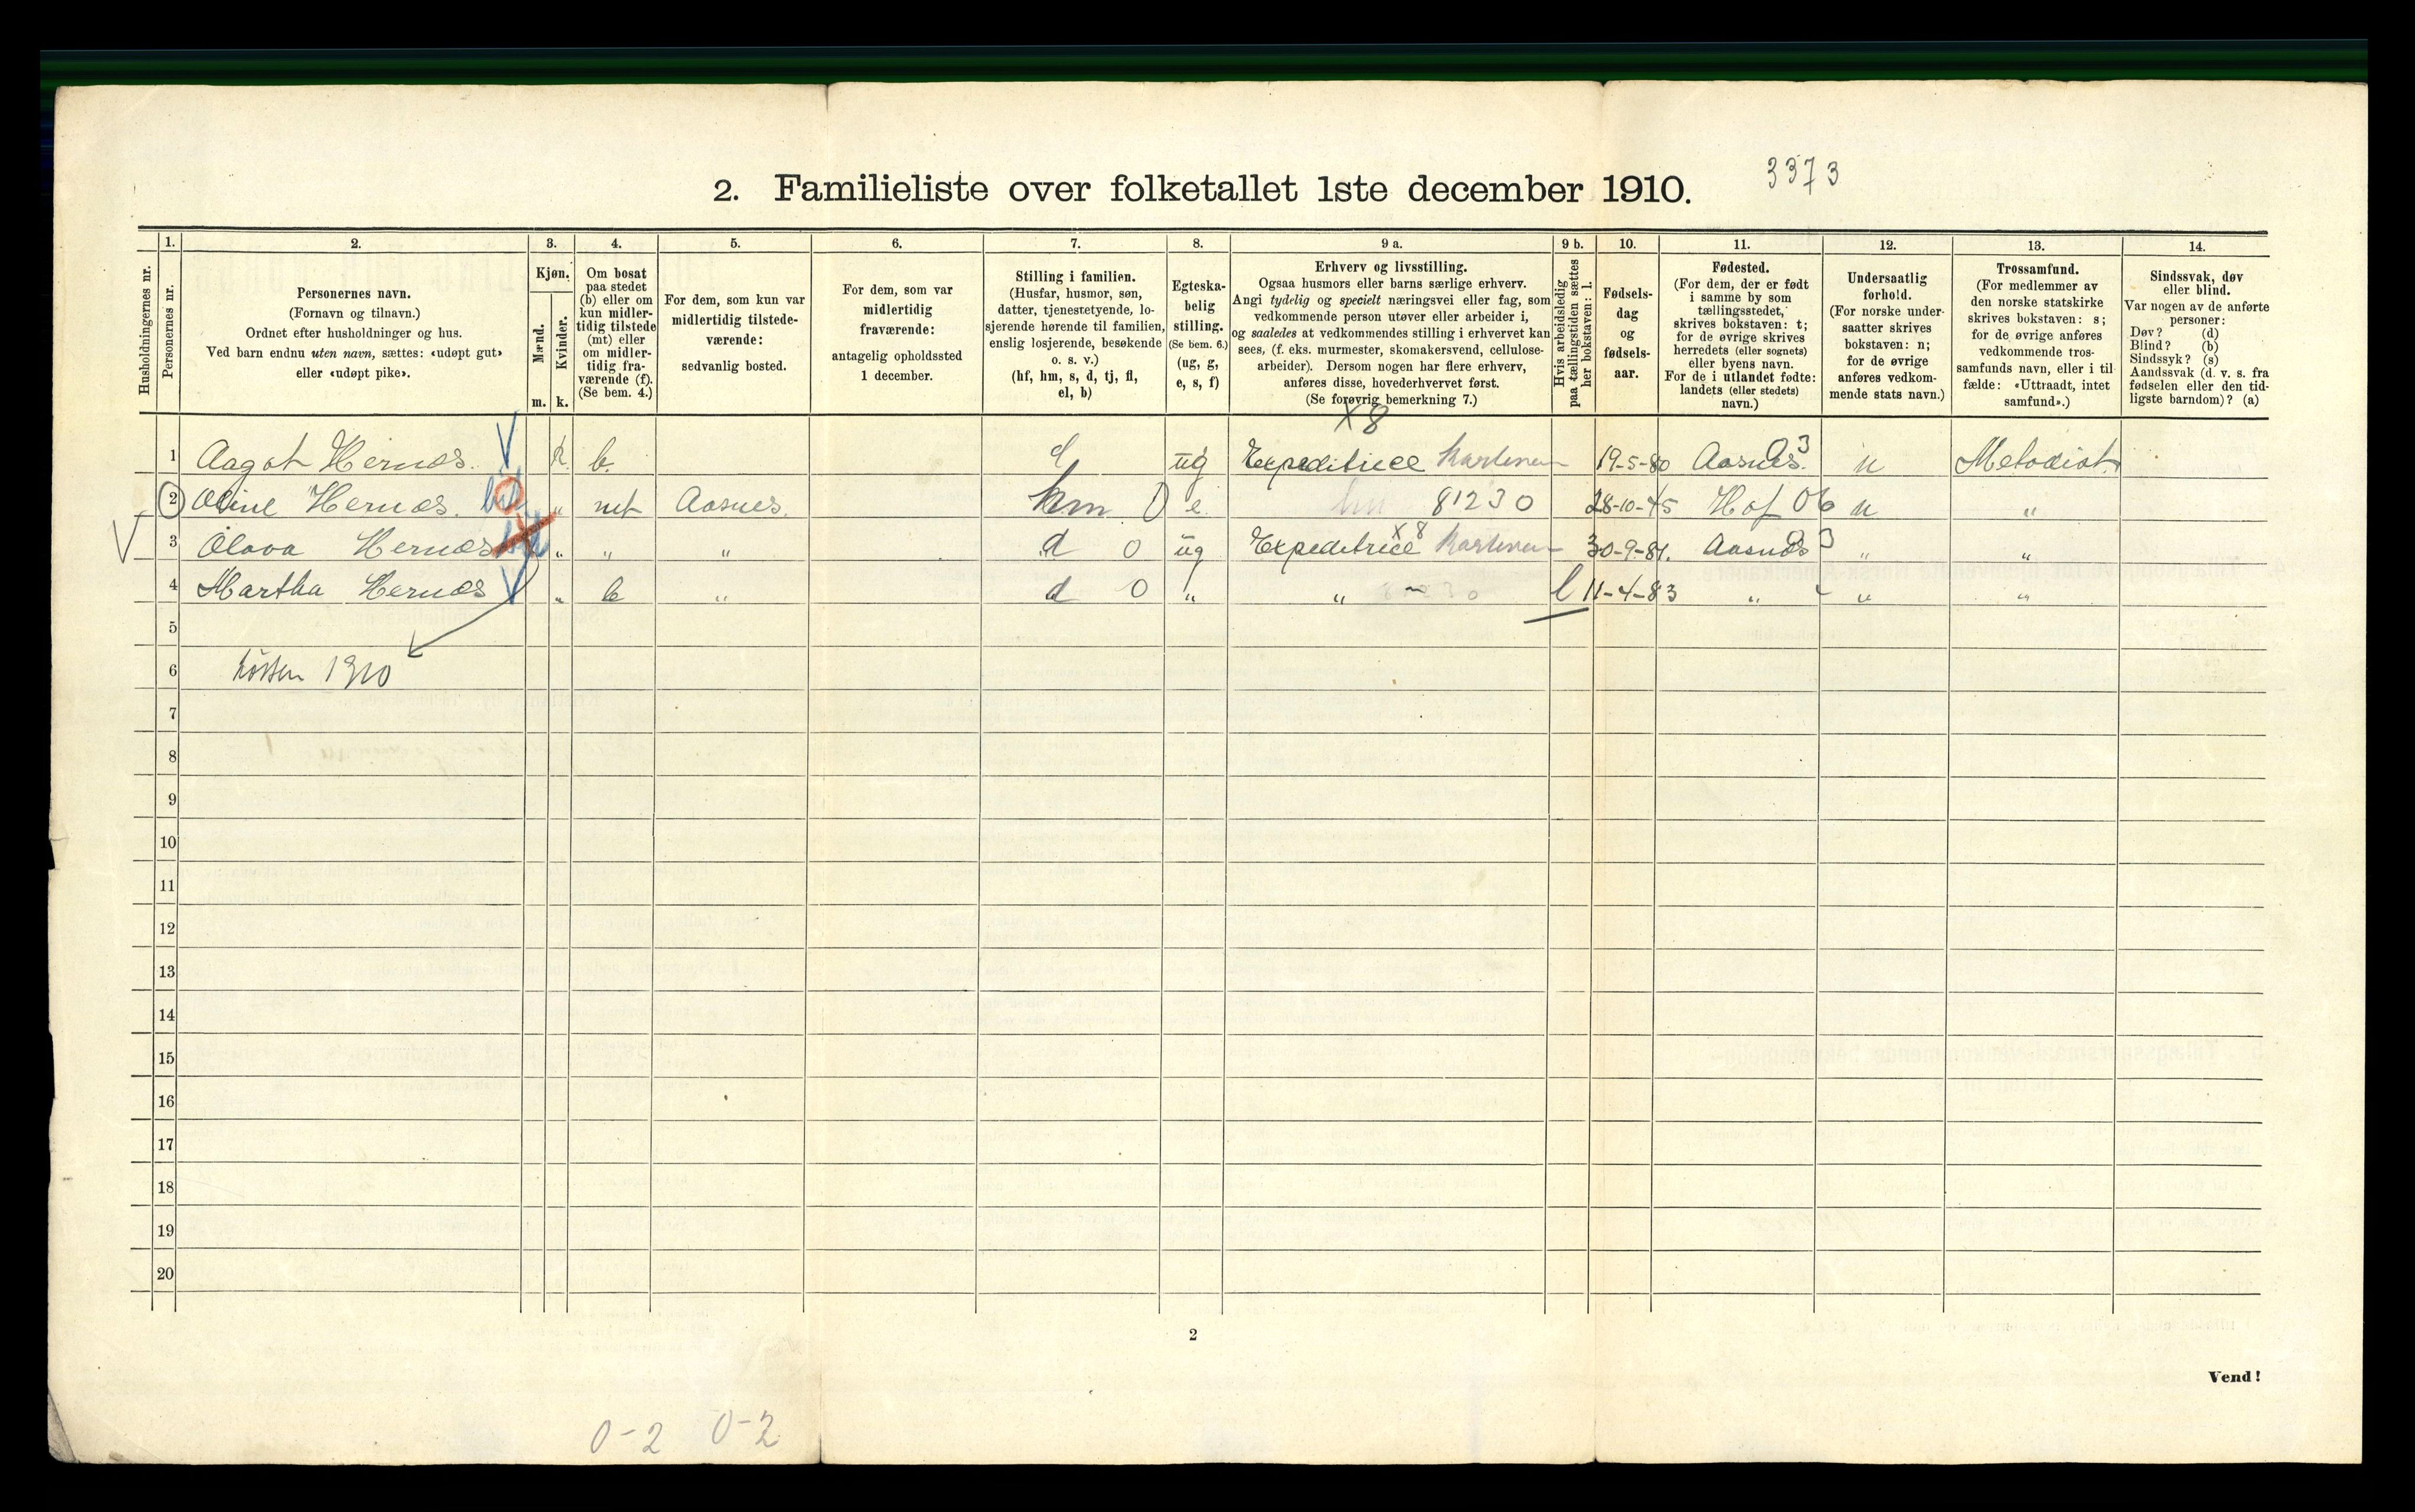 3373
2. Familieliste over folketallet 1ste december 1910.
1. 2. 3. 4. 5. 6. 7. 8. 9 a. 9 b. 10. 11. 12. 13. 14.
Husholdningernes nr.
Personernes nr.
Personernes navn.
(Fornavn og tilnavn.)
Ordnet efter husholdninger og hus.
Ved barn endnu uten navn, sættes: «udøpt gut»
eller «udøpt pike».
Kjøn.
Mænd.
Kvinder.
m. k.
Om bosat
paa stedet
(b) eller om
kun midler-
tidig tilstede
(mt) eller
om midler-
tidig fra-
værende (f).
(Se bem. 4.)
For dem, som kun var
midlertidig tilstede-
værende:
sedvanlig bosted.
For dem, som var
midlertidig
fraværende:
antagelig opholdssted
1 december.
Stilling i familien.
(Husfar, husmor, søn,
datter, tjenestetyende, lo-
sjerende hørende til familien,
enslig losjerende, besøkende
o. s. v.)
(hf, hm, s, d, tj, fl,
el, b)
Egteska-
belig
stilling.
(Se bem. 6.)
(ug, g,
e, s, f)
Erhverv og livsstilling.
Ogsaa husmors eller barns særlige erhverv.
Angi tydelig og specielt næringsvei eller fag, som
vedkommende person utøver eller arbeider i,
og saaledes at vedkommendes stilling i erhvervet kan
sees, (f. eks. murmester, skomakersvend, cellulose-
arbeider). Dersom nogen har flere erhverv,
anføres disse, hovederhvervet først.
(Se forøvrig bemerkning 7.)
Hvis arbeidsledig
paa tællingstiden sættes
her bokstaven: l.
Fødsels-
dag
og
fødsels-
aar.
Fødested.
(For dem, der er født
i samme by som
tællingsstedet,
skrives bokstaven: t;
for de øvrige skrives
herredets (eller sognets)
eller byens navn.
For de i utlandet fødte:
landets (eller stedets)
navn.)
Undersaatlig
forhold.
(For norske under-
saatter skrives
bokstaven: n;
for de øvrige
anføres vedkom-
mende stats navn.)
Trossamfund.
(For medlemmer av
den norske statskirke
skrives bokstaven: s;
for de øvrige anføres
vedkommende tros-
samfunds navn, eller i til-
fælde: «Uttraadt, intet
samfund».)
Sindssvak, døv
eller blind.
Var nogen av de anførte
personer:
Døv? (d)
Blind? (b)
Sindssyk? (s)
Aandssvak (d. v. s. fra
fødselen eller den tid-
ligste barndom)? (a)
x8
1 Aagot Hernæs. k. b. ug Expeditrice 19-5-80 Aasnes. 3 n Metodist.
2 Oline Hernæs. „ mt Aasnes. hm 0 e. 81230 28-10-45 Hof 06 n „
3 Olava Hernæs „ „ „ d 0 ug Expeditrice x8 30-9-81. Aasnæs 3 „ „
4 Martha Hernæs „ b „ d 0 „ „ l 11-4-83 „ „ „
5
6 høsten 1910
7
8
9
10
11
12
13
14
15
16
17
18
19
20
2
Vend!
0-2 0-2